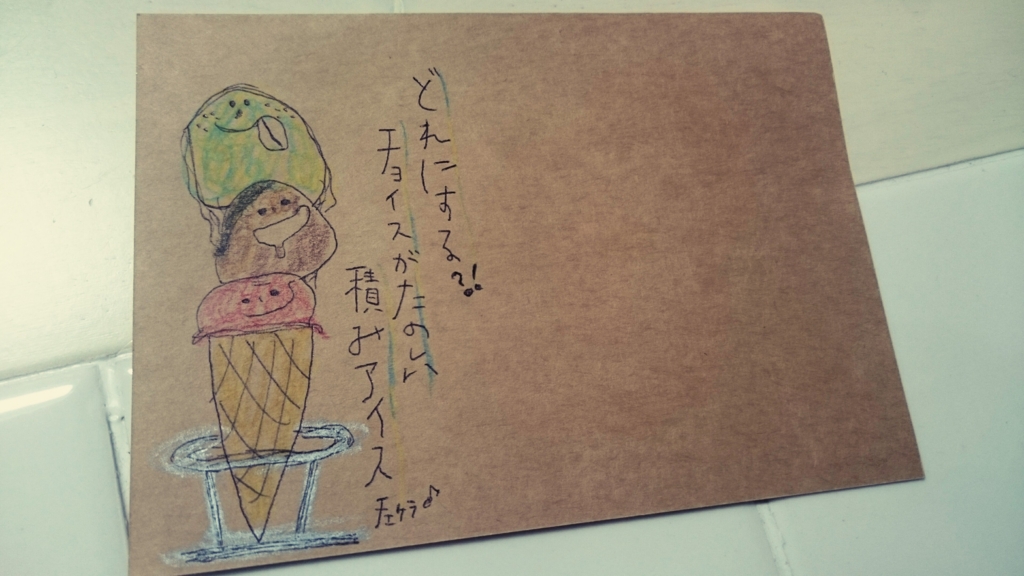 どれにする?!
チョイスがたのしい
積みアイス
チェケラ♪